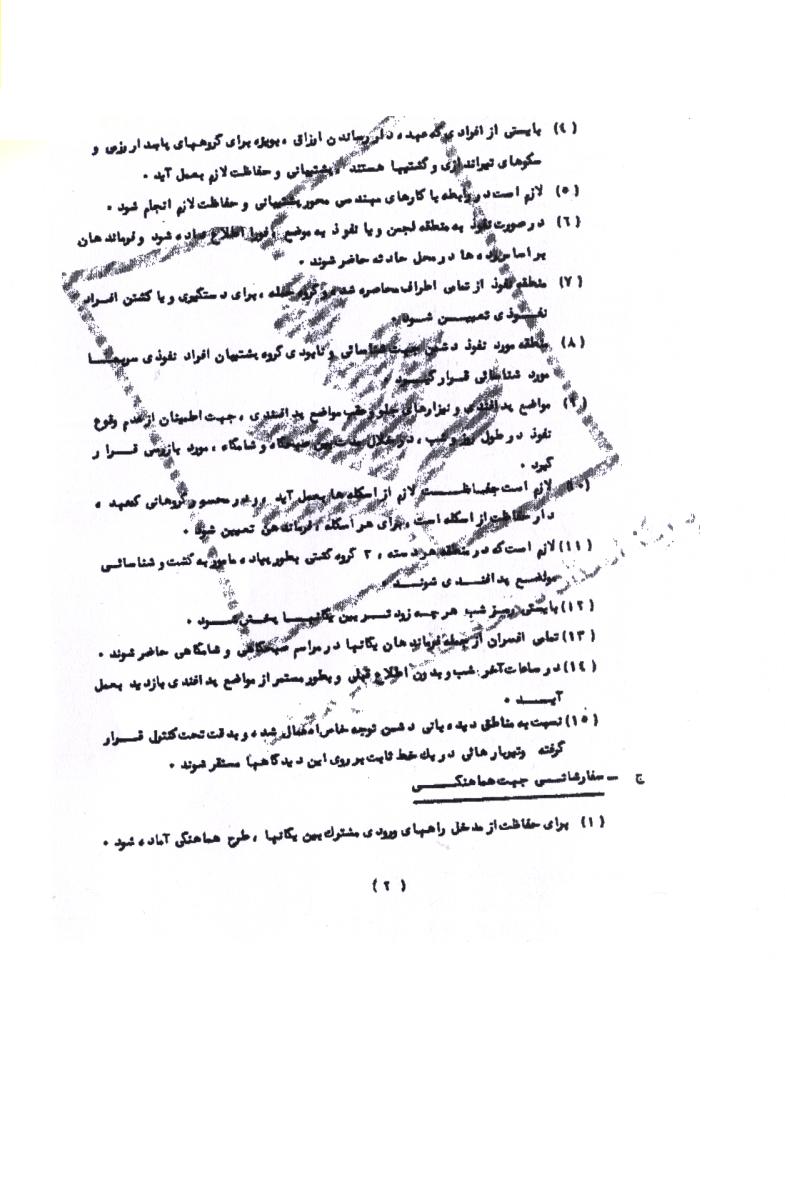 (٤) بایستی از افرادی که عهده دار رساندن ارزاق ، بویژه برای گروههای پایدار رزمی و
سکوهای تیراندازی و گشتیها هستند ، پشتیبانی و حفاظت لازم بعمل آید .
(٥) لازم است در رابطه با کارهای مهندسی محور پشتیبانی و حفاظت لازم انجام شود .
(٦) در صورت نفوذ به منطقه لجمن و یا نفوذ به موضع ، فورا اطلاع داده شود و فرماندهان
بر اساس رده ها در محل حادثه حاضر شوند .
(٧) منطقه نفوذ از تمامی اطراف محاصره شده و گروه حمله ، برای دستگیری و یا کشتن افراد
نفوذی تعیین شود .
(٨) منطقه مورد نفوذ دشمن جهت شناسائی و نابودی گروه پشتیبان افراد نفوذی سریعا
مورد شناسائی قرار گیرد .
(٩) مواضع پدافندی و نیزارهای جلو و عقب مواضع پدافندی ، جهت اطمینان از عدم وقوع
نفوذ در طول روز و شب ، در خلال مدت بین صبحگاه و شامگاه ، مورد بازرسی قرار
گیرد .
(١٠) لازم است حفاظت لازم از اسکله ها بعمل آید ، و در محور گروهانی که عهده
دار حفاظت از اسکله است ، برای هر اسکله ، فرماندهی تعیین شود .
(١١) لازم است که در منطقه هر دسته ، ٢ گروه گشتی بطور پیاده مامور به گشت و شناسائی
مواضع پدافندی شوند .
(١٢) بایستی رمز شب هر چه زود تر بین یگانها پخش شود .
(١٣) تمامی افسران از جمله فرماندهان یگانها در مراسم صبحگاهی و شامگاهی حاضر شوند .
(١٤) در ساعات آخر شب و بدون اطلاع قبلی و بطور مستمر از مواضع پدافندی بازدید بعمل
آید .
(١٥) نسبت به مناطق دیده بانی دشمن توجه خاص اعمال شده و بدقت تحت کنترل قرار
گرفته و تیربارهائی در یک خط ثابت بر روی این دیدگاهها مستقر شوند .
ج ـ سفارشاتی جهت هماهنگی
(١) برای حفاظت از مدخل راههای ورودی مشترک بین یگانها ، طرح هماهنگی آماده شود .
(٢)